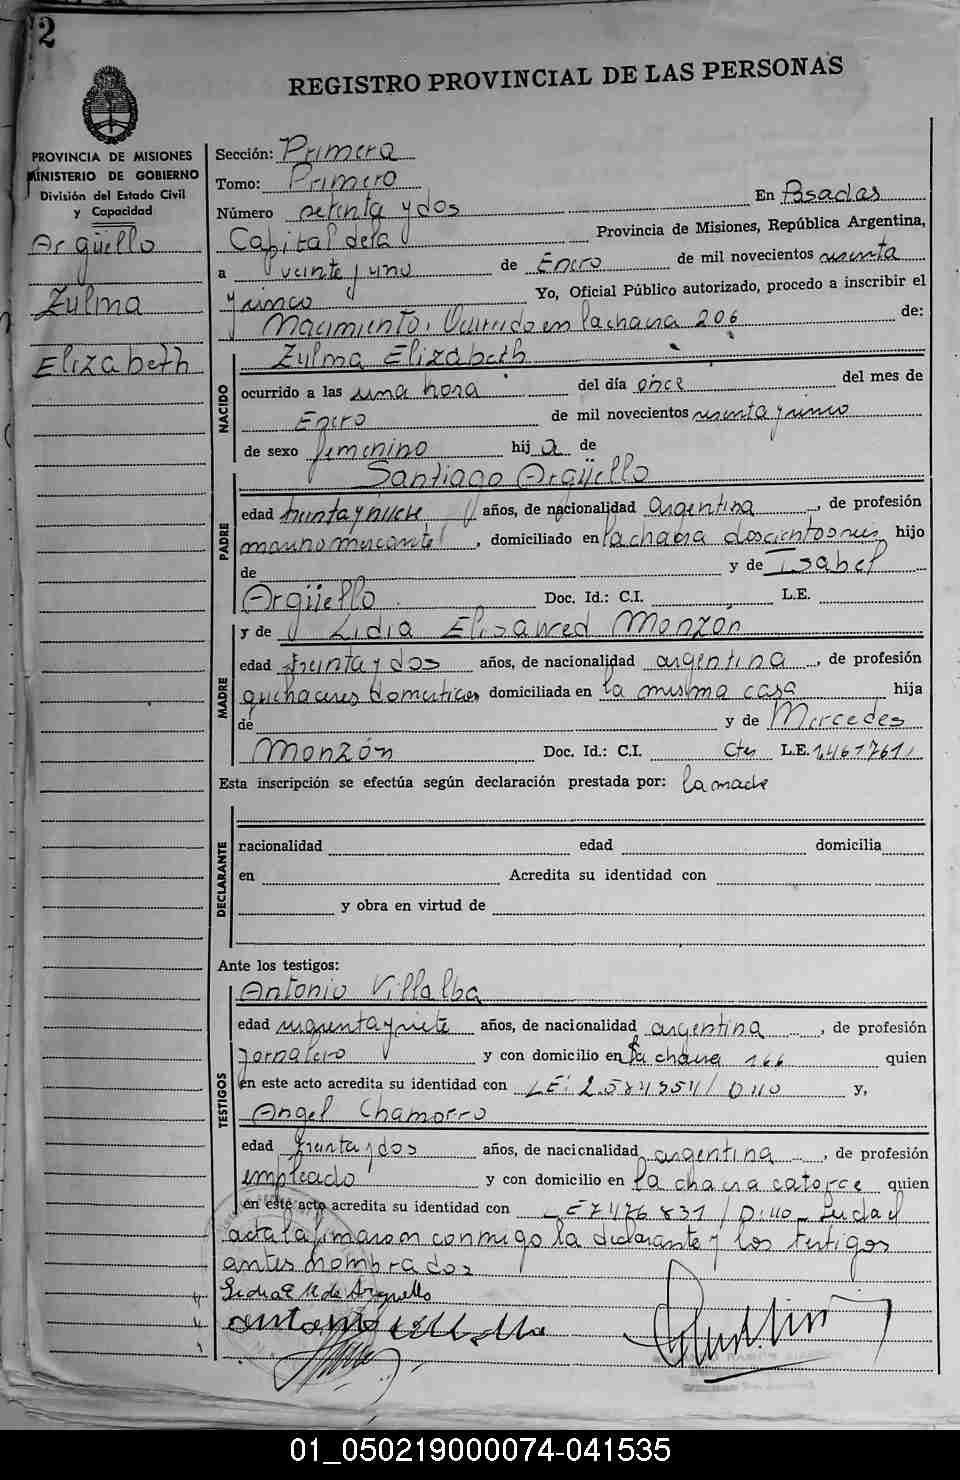 2
REGISTRO PROVINCIAL DE LAS PERSONAS
PROVINCIA DE MISIONES
MINISTERIO DE GOBIERNO
División del Estado Civil
y Capacidad
Argüello
Zulma
Elizabeth
Sección: Primera
Tomo: Primero
Número setenta y dos En Posadas
Capital de la Provincia de Misiones, República Argentina,
a veinte y uno de Enero de mil novecientos sesenta
y cinco Yo, Oficial Público autorizado, procedo a inscribir el
Nacimiento. Ocurrido en la chacra 206 de:
NACIDO
Zulma Elizabeth
ocurrido a las una hora del día once del mes de
Enero de mil novecientos sesenta y cinco
de sexo femenino hij a de
PADRE
Santiago Argüello
edad treinta y nueve años, de nacionalidad argentina, de profesión
marino mercante, domiciliado en la chacra doscientos seis hijo
de y de Isabel
Argüello Doc. Id.: C.I. L.E.
MADRE
y de Lidia Monzón
edad treinta y dos años, de nacionalidad argentina, de profesión
quehaceres domesticos domiciliada en la misma casa hija
de y de Mercedes
Monzón Doc. Id.: C.I. Ctes L.E. 1,461761,
Esta inscripción se efectúa según declaración prestada por: la madre
DECLARANTE
nacionalidad edad domicilia
en Acredita su identidad con
y obra en virtud de
Ante los testigos:
TESTIGOS
Antonio Villalba
edad cincuenta y siete años, de nacionalidad argentina, de profesión
jornalero y con domicilio en la chacra 166 quien
en este acto acredita su identidad con LE: 2.584954/ D 110 y,
Angel Chamorro
edad treinta y dos años, de nacionalidad argentina, de profesión
empleado y con domicilio en la chacra catorce quien
en este acto acredita su identidad con LE 7476831/ D: 110 Leida el
acta la firmaron conmigo la declarante y los testigos
antes nombrados
Lidia E M de Arguello
Antonio Villalba
01_050219000074-041535